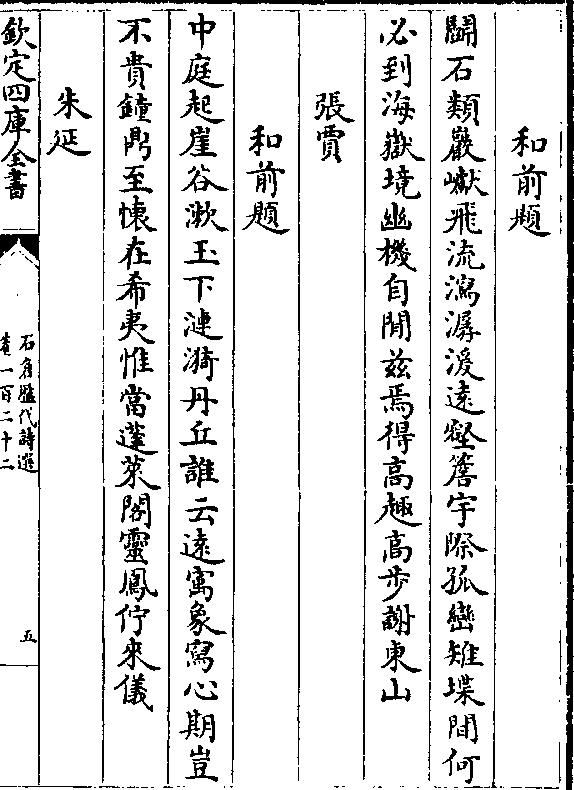 和前題
闢石類巖巘飛流瀉潺湲遠壑簷宇際孤巒雉堞間何
必到海嶽境幽機自閒兹焉得高趣高步謝東山
張賈
和前題
中庭起崖谷漱玉下漣漪丹丘誰云遠寓象寫心期豈
不貴鐘鼎至懷在希夷惟當蓬萊閣靈鳳佇來儀
朱延
欽定四庫全書
石倉歷代詩選
卷一百二十二
五